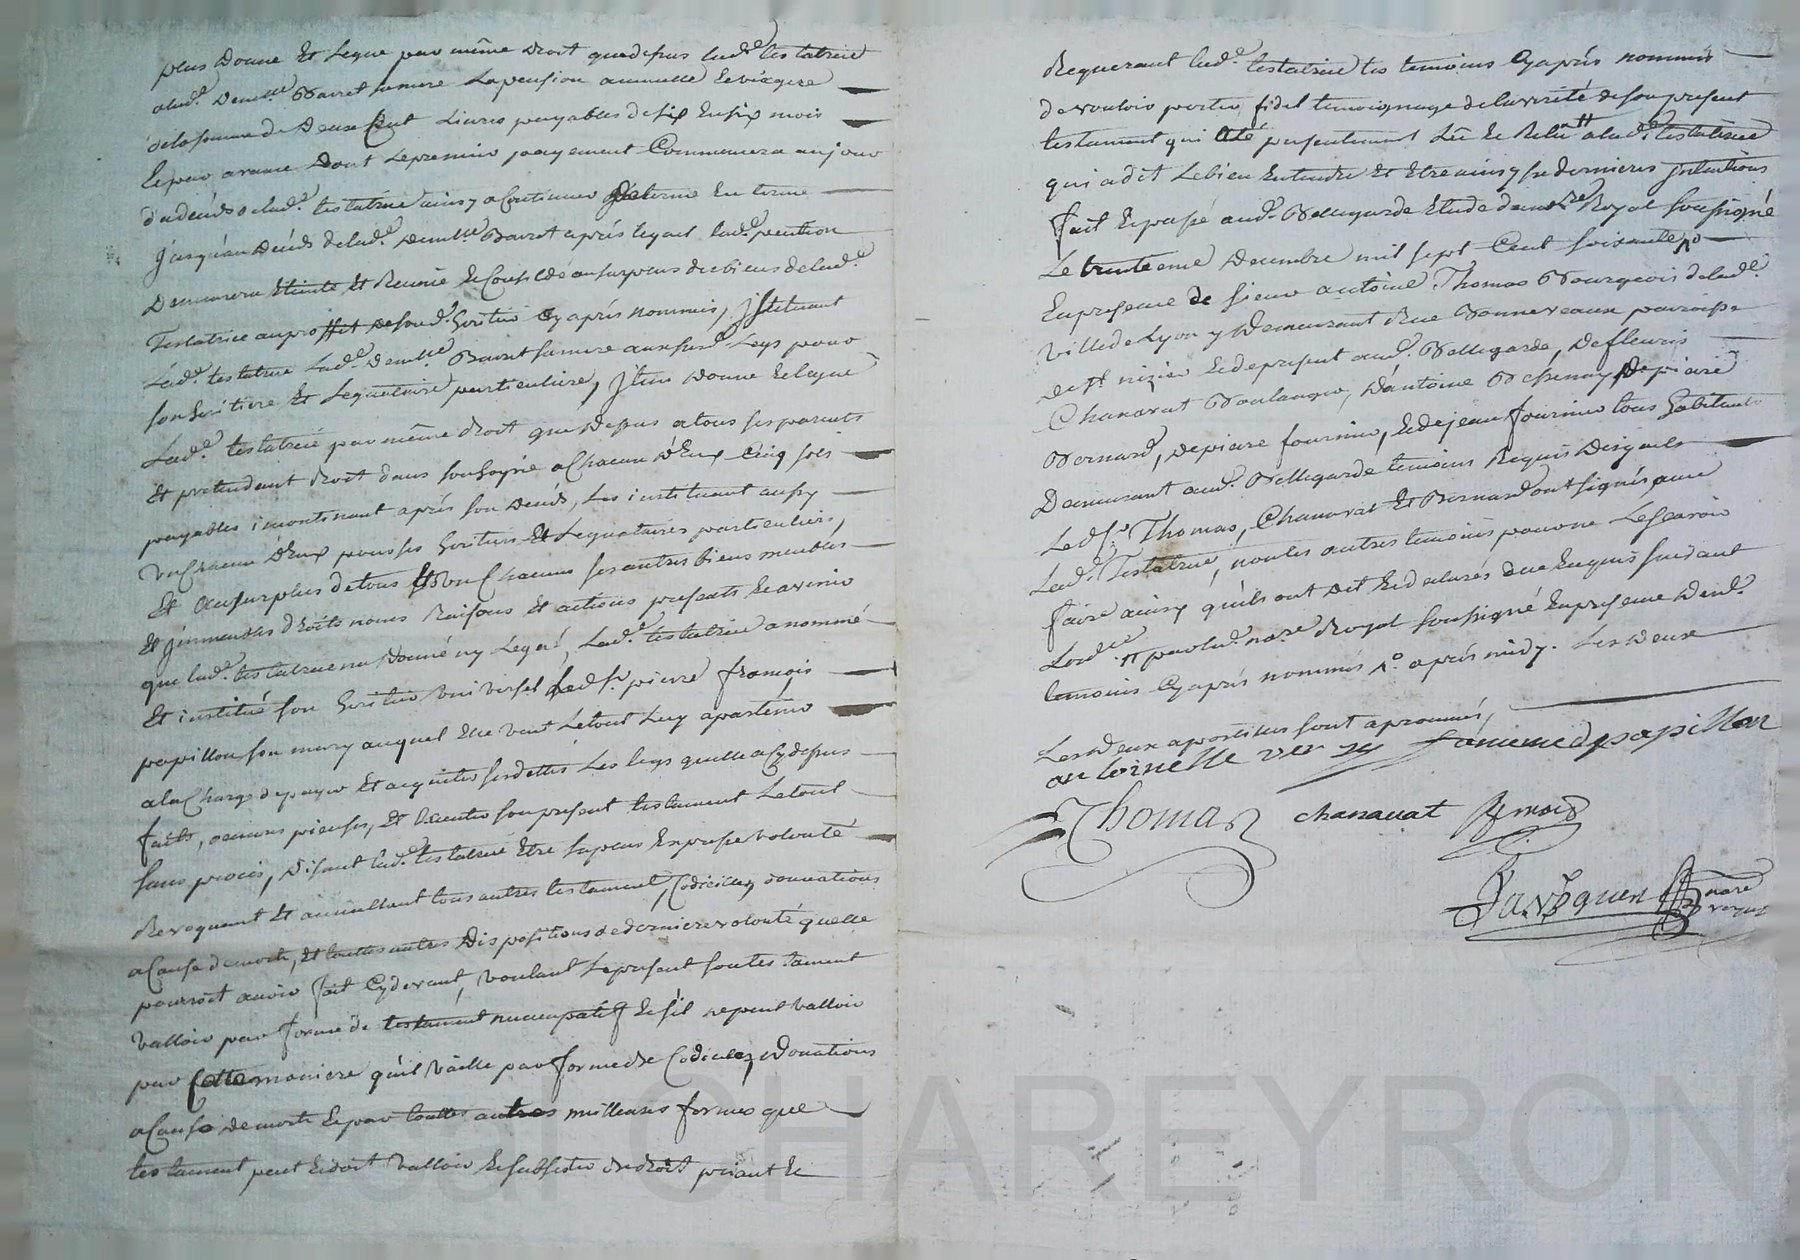 plus donne et legue par même droit que dessus lad.e testatrice
alad.e Demlle Barret sa mere la pension annuelle et viagere
de la somme de deux Cent Livres payables de six en six mois
et par avance dont le premier payement Commencera au jour
du deceds de lad.e testatrice ainsy a Continuer de terme en terme
jusqu'au deceds de lad.e demlle Barret après lequel lad.e pention
demeurera eteinte et Reunie et Consolidé au surplus des biens de lad.e
Testatrice au proffit de son d. heritier Cy après nommés, instituant
lad.e testatrice lad.e Demlle Barret sa mere aux susd. Legs pour
son heritiere et Legataire particuliere, Item donne et legue
Lad.e testatrice par même droit que dessus a tous ses parents
et pretendant droit dans son hoyrie a Chacun d'eux Cinq sols
payables incontinant après son deceds, Les instituant aussy
un Chacun d'eux pour ses heritiers et Legataires particuliers,
et au surplus de tous et un Chacuns ses autres biens meubles
et immeubles droits noms Raisons et actions presents et avenir
que lad.e testatrice n'a donné ny Légué, Lad.e testatrice a nommé
et institué son heritier universel led. Sr. pierre françois
papillon son mary auquel elle veut le tout luy apartenir
a la Charge de payer et acquitter ses dettes Les legs quelle a Cy dessus
faits, oeuvres pieuses, et executer son present testament Le tout
sans procès, disant lad.e testatrice etre sa plus expresse volonté
Revoquant et annullant tous autres testament, Codicilles, donnations
a Cause de mort, et touttes autres dispositions de derniere volonté quelle
pourroit avoir fait Cy devant, voulant le present son testament
valloir par forme de testament nuncupatif et s'il ne peut valloir
par Cette maniere qu'il vaille par forme de Codicille, donations
a Cause de mort et par touttes autres meilleures formes que
testament peut et doit valloir et subsister de droit priant et
Requerant lad.e testatrice les temoins Cy après nommés
de vouloir porter fidel temoignage de la verité de son present
testament qui a été presentement Lû et Relu a la d.e testatrice
qui a dit Le bien entendre et etre ainsy ses dernieres intentions
fait et passé aud. Bellegarde Etude du nore Royal soussigné
Le trente eme decembre mil sept Cent soixante
en presence de sieur antoine Thomas Bourgeois de lad.e
ville de Lyon y demeurant Rue Bonneveaux paroisse
de St. nizier et de present aud. Bellegarde, de fleuris
Chanavat Boulanger, d'antoine de pierre
Bernard, de piere fournier, et de jean fournier tous habitants
Demeurant aud. Bellegarde temoins Requis desquels
Led. Sr. Thomas, Chanavat et Bernard ont signés avec
Lad.e Testatrice, non les autres temoins pour ne Le scavoir
faire ainsy qu'ils ont dit et declarés de ce enquis suivant
Lord.ce par lad. nore Royal soussigné en presence desd.
temoins Cy après nommés après midy. Les deux
Les deux apostilles sont aprouvées,
antoinette verzy famme de papillon
Thomas chanauat Bernard
nore royal